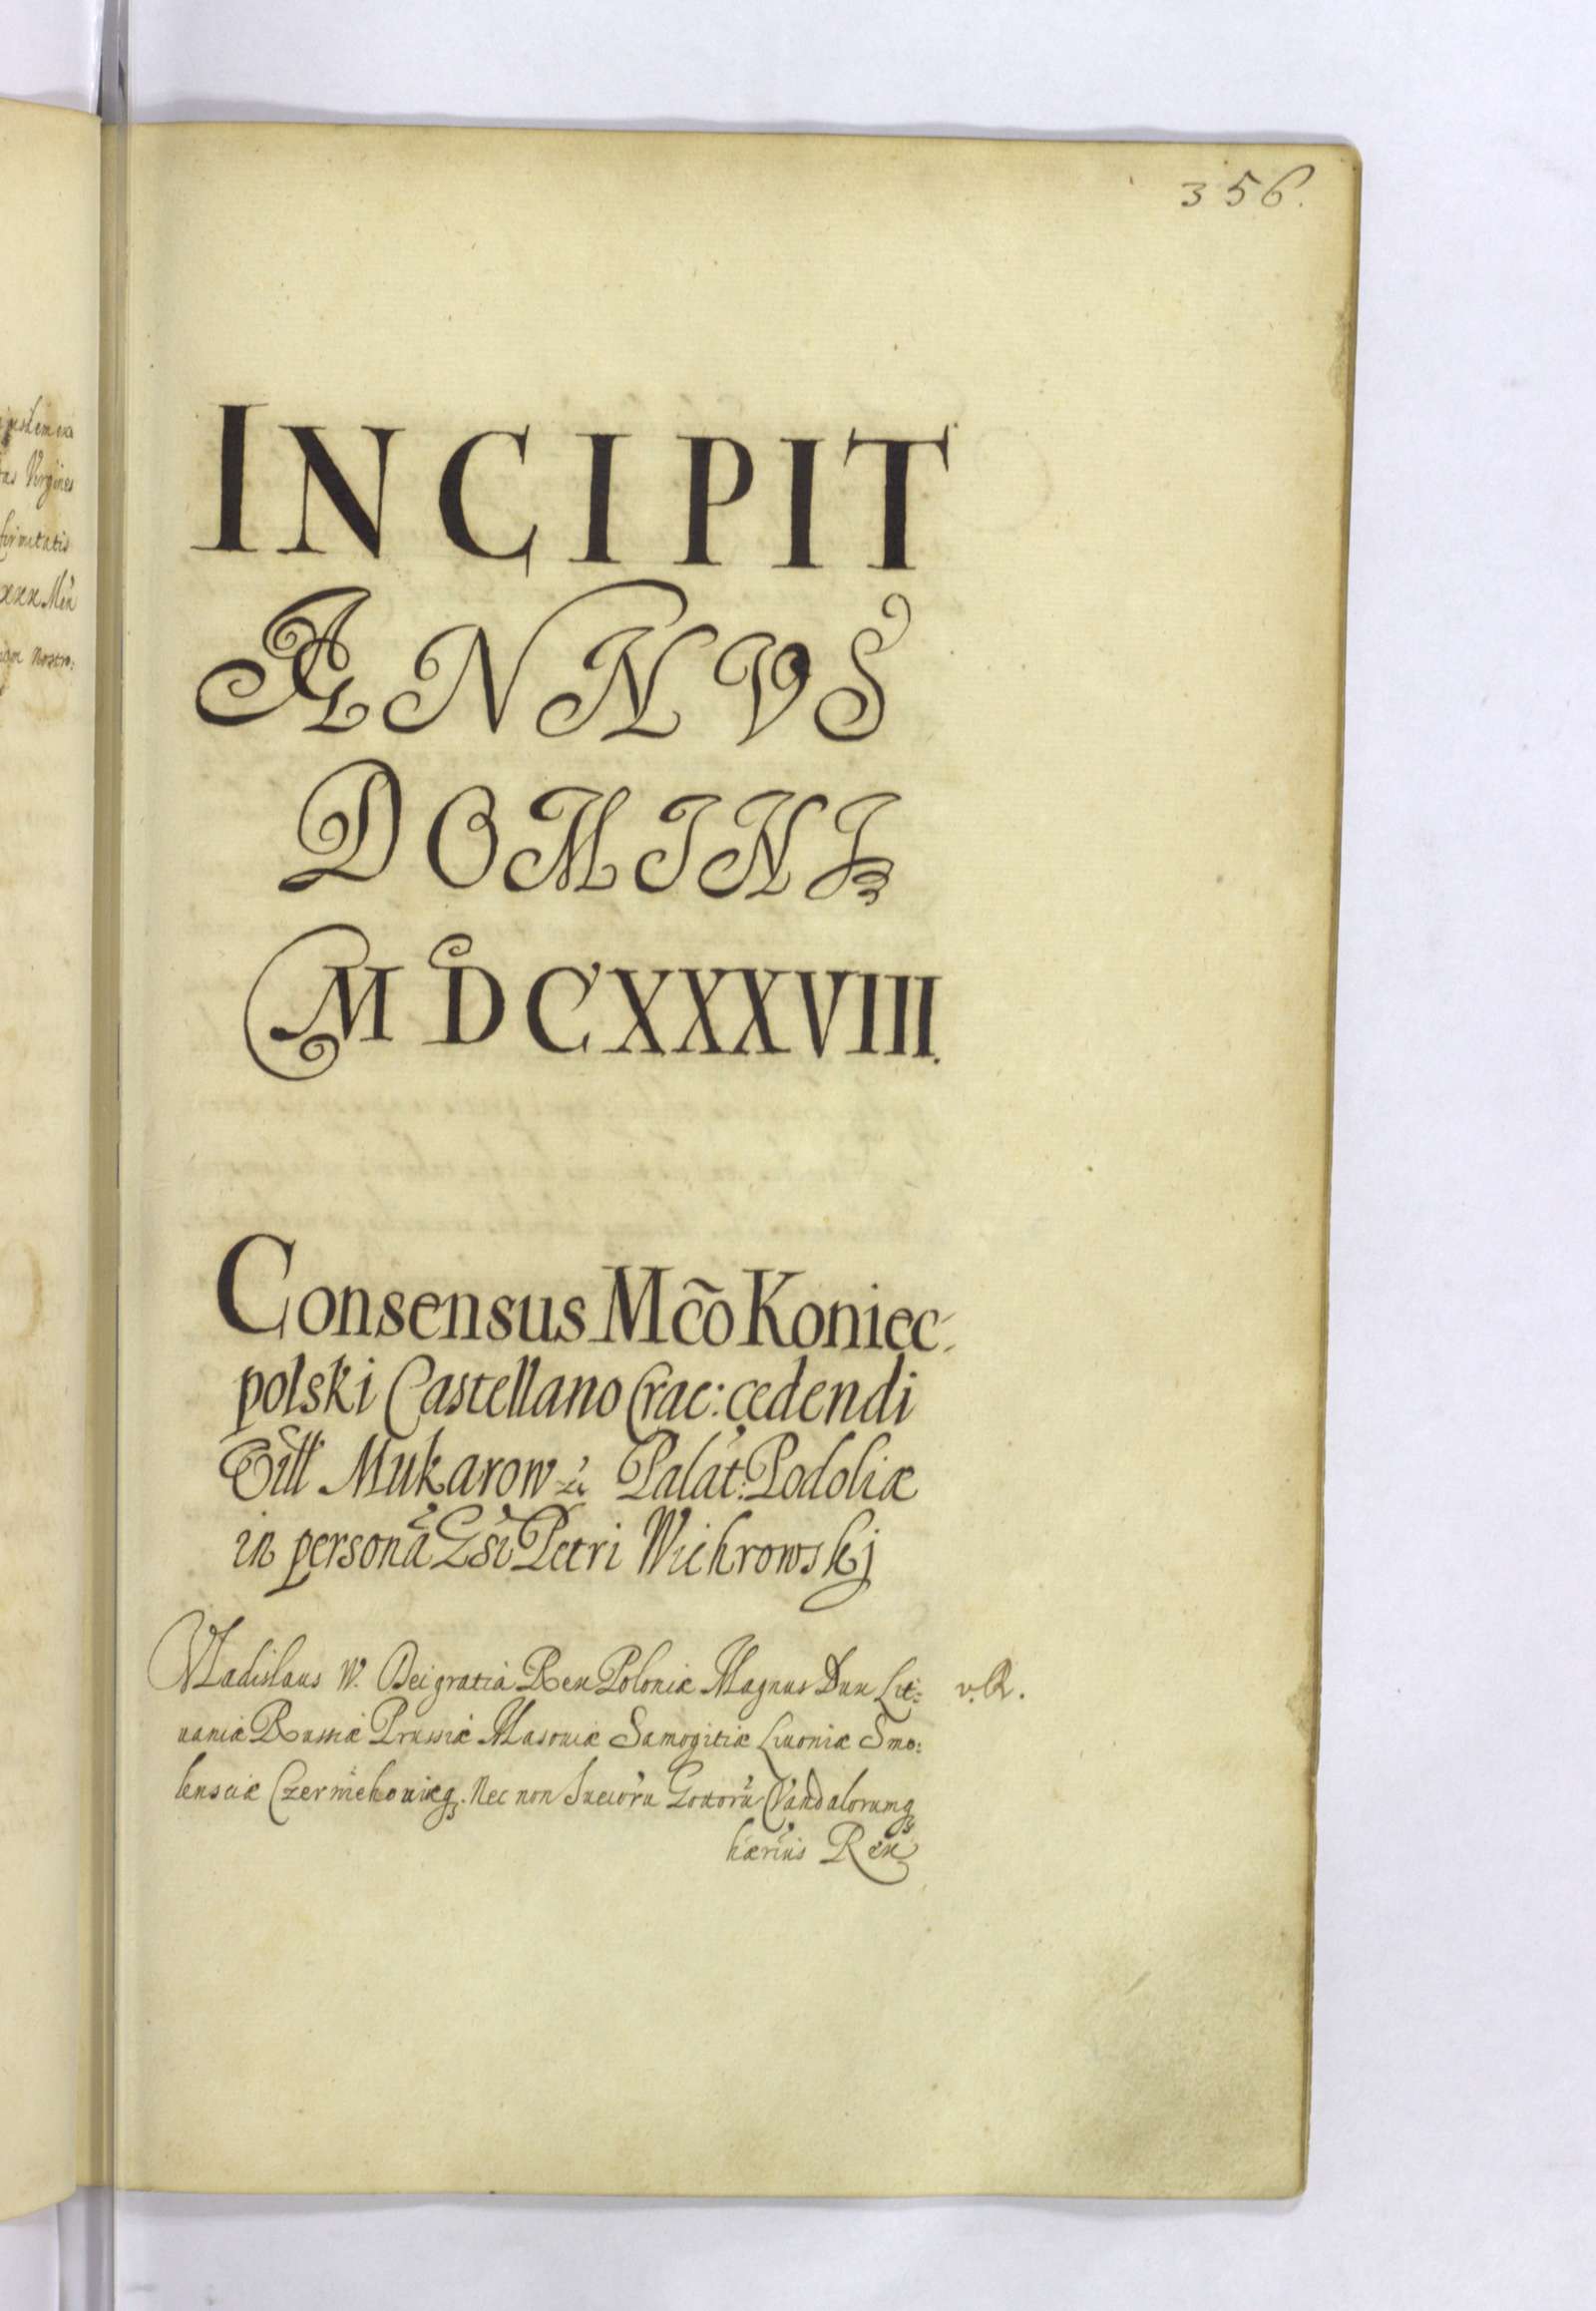 356.
INCIPIT
ANNVS
DOMINI
MDCXXXVIII.
Consensus Mco Koniec-
polski Castellano Crac: cedendi
Vill Mukarow in Palat: Podoliæ
in persona Gsi Petri Wichrowskj
Vladislaus IV. Dei gratia Rex Poloniæ Magnus Dux Lit: v. R.
uaniæ Russiæ Prussiæ Masouiæ Samogitiæ Liuoniæ Smo:
lensciæ Czerniehouiæq. Nec non Sueioru Gottoru Vandalorumq
hærius Rex
justem
tas Virgines
firmitatis
xxx Men
nostro: